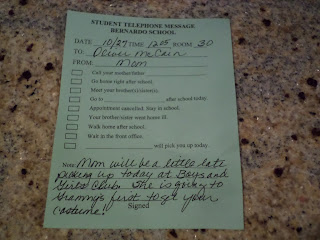 STUDENT TELEPHONE MESSAGE
BERNARDO SCHOOL
DATE 10/27 TIME 1205 ROOM 30
TO: Oliver McCain
FROM: Mom
Call your mother/father
Go home right after school.
Meet your brother(s)/sister(s).
Go to after school today.
Appointment cancelled. Stay in school.
Your brother/sister went home ill.
Walk home after school.
Wait in the front office.
will pick you up today.
Note: Mom will be a little late
picking up today at Boys and
Girls Club. She is going to
Grammy's first to get your
costume!
Signed